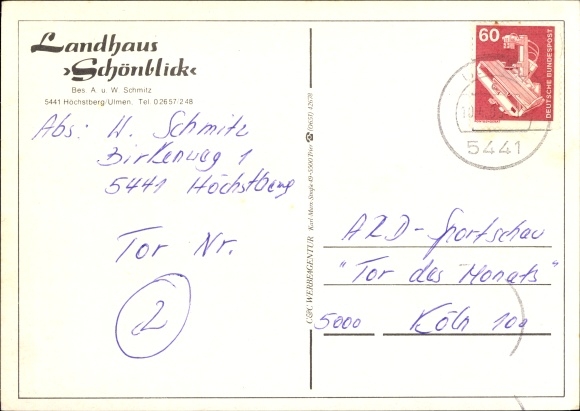 Landhaus
›Schönblick‹
Bes. A. u. W. Schmitz
5441 Höchstberg/Ulmen, Tel. 02657/248
Abs: W. Schmitz
Birkenweg 1
5441 Höchstberg
Tor Nr.
2
C&C WERBEAGENTUR Karl-Marx-Straße 5500 Trier ☎ (0651) 42678
60
DEUTSCHE BUNDESPOST
5441
ARD-Sportschau
"Tor des Monats"
5000 Köln 100